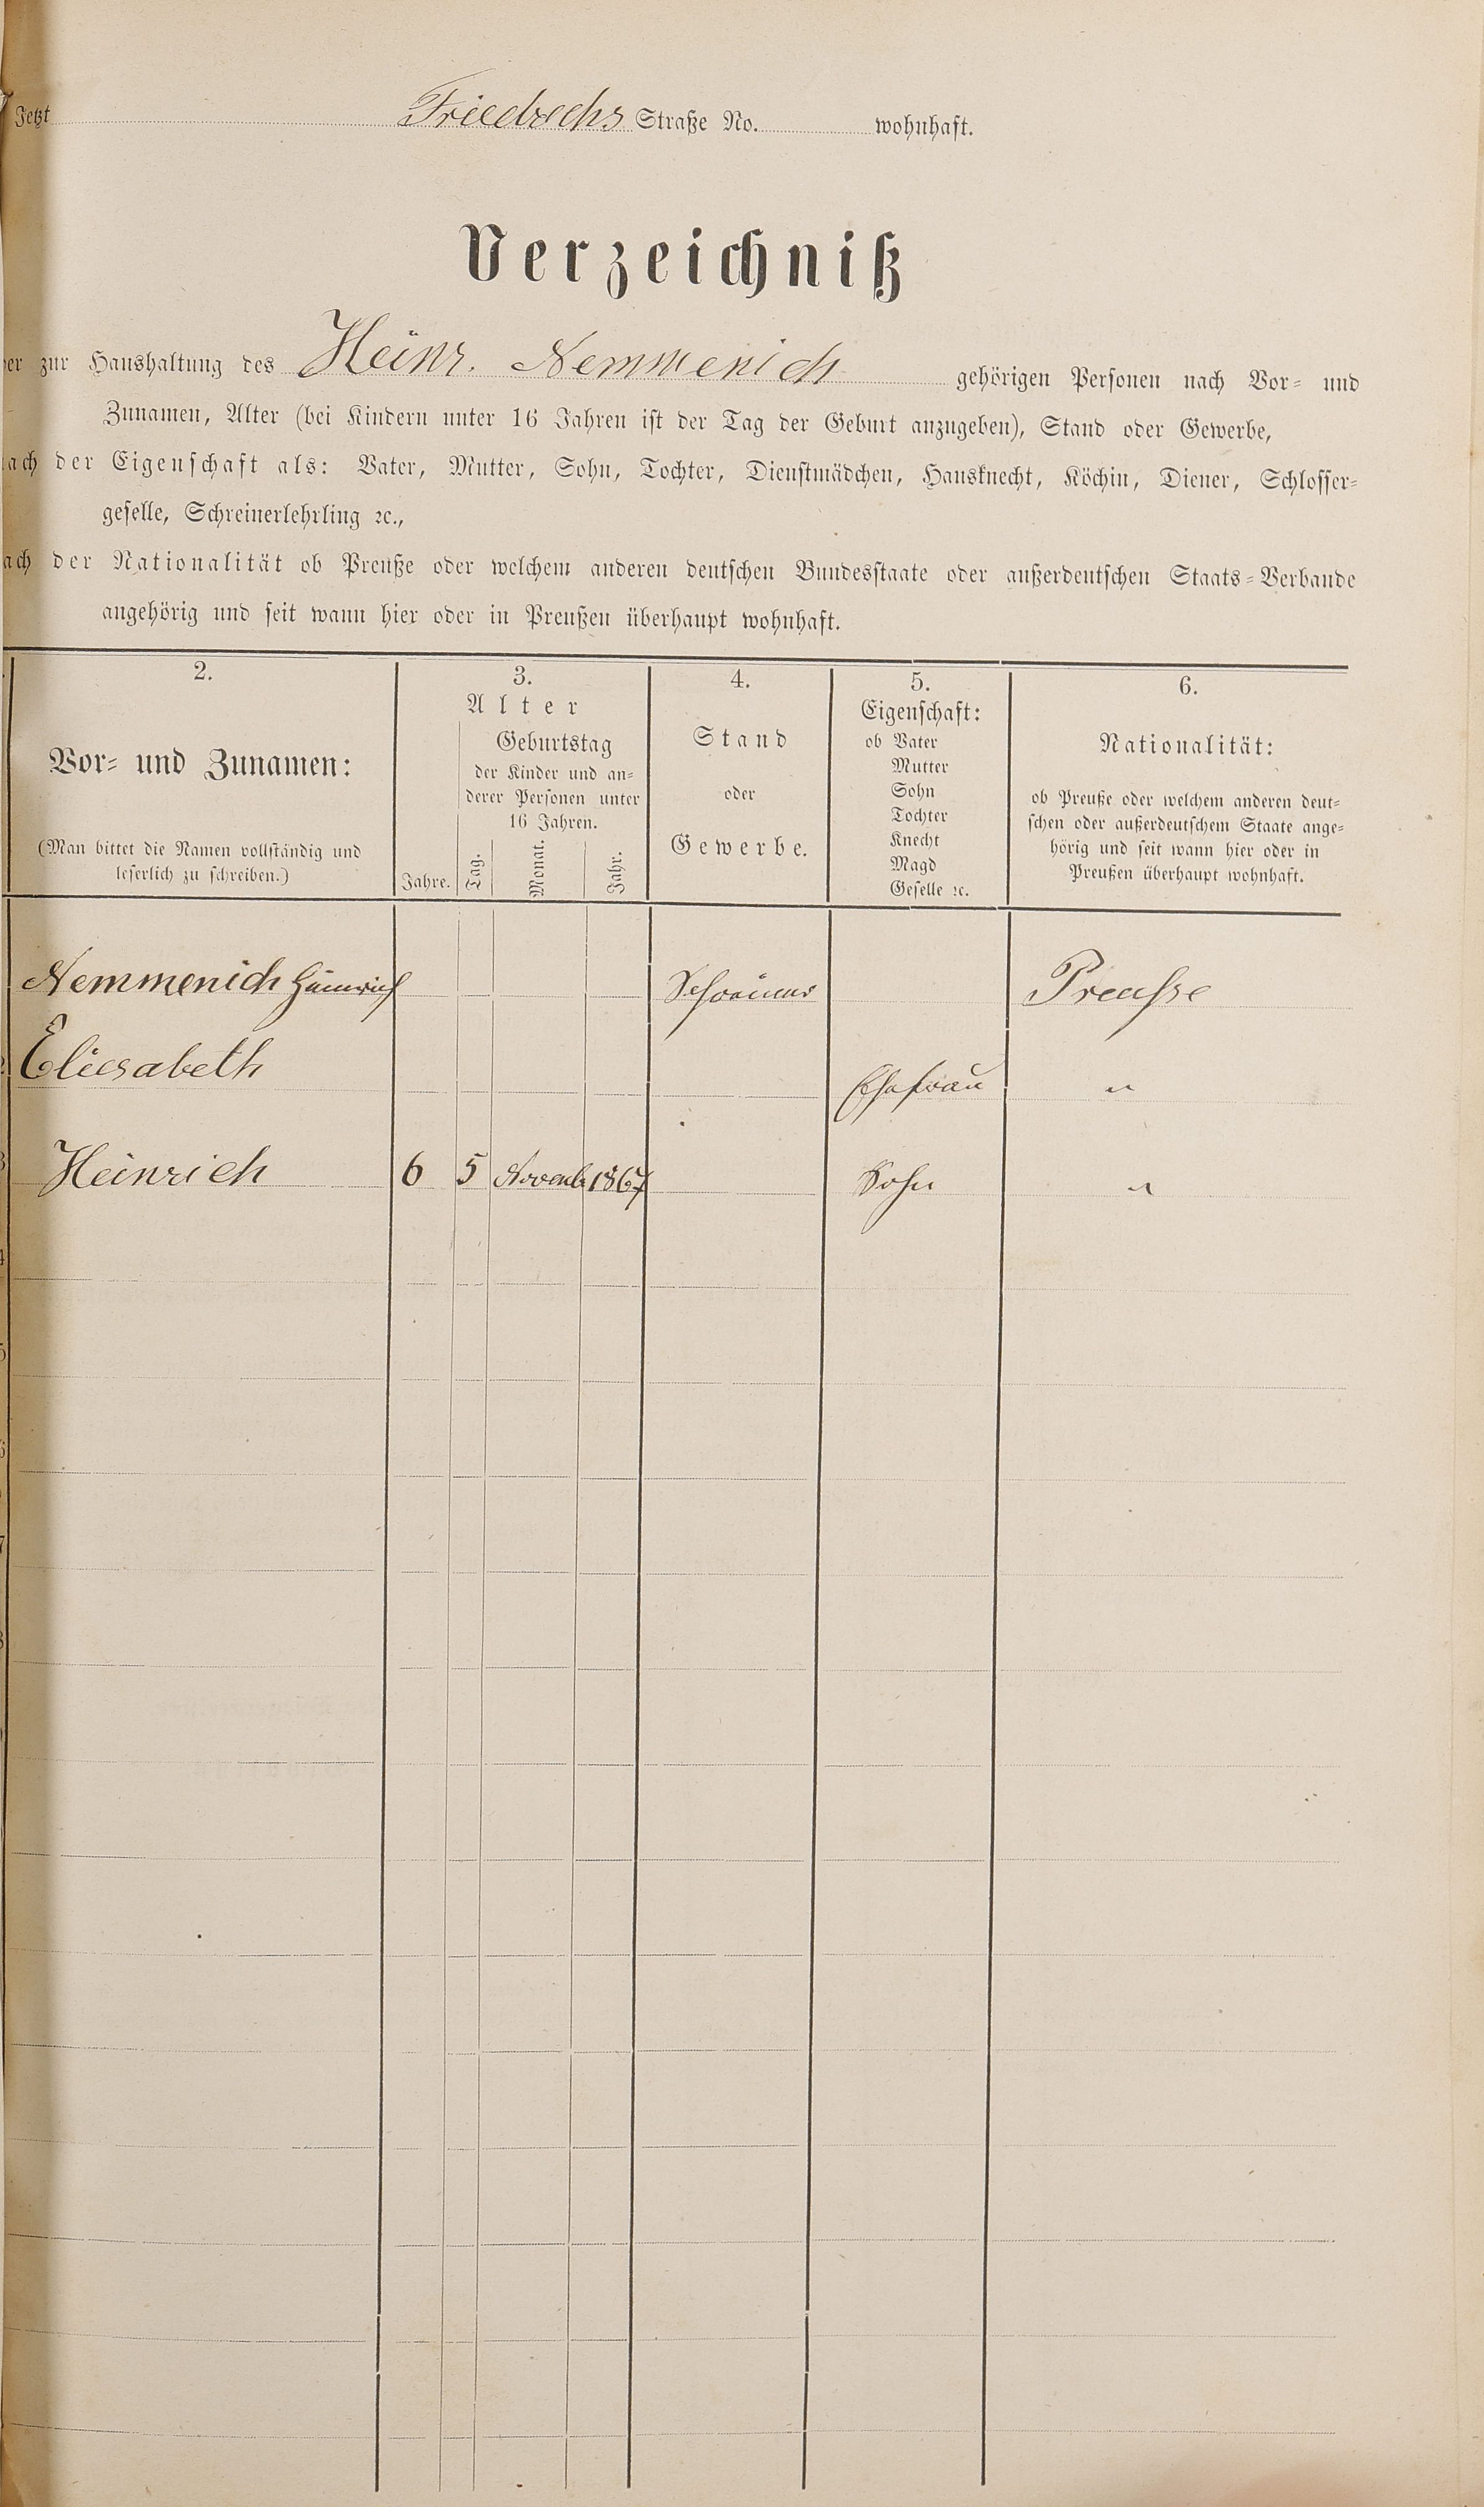 Jetzt Friedrichs Straße No. wohnhaft.
Verzeichniß
der zur Haushaltung des Heinr. Nemmenich gehörigen Personen nach Vor- und
Zunamen, Alter (bei Kindern unter 16 Jahren ist der Tag der Geburt anzugeben), Stand oder Gewerbe,
nach der Eigenschaft als: Vater, Mutter, Sohn, Tochter, Dienstmädchen, Hausknecht, Köchin, Diener, Schlosser-
geselle, Schreinerlehrling ꝛc.,
nach der Nationalität ob Preuße oder welchem anderen deutschen Bundesstaate oder außerdeutschen Staats-Verbande
angehörig und seit wann hier oder in Preußen überhaupt wohnhaft.
2.
Vor- und Zunamen:
(Man bittet die Namen vollständig und
leserlich zu schreiben.)
3.
Alter
Geburtstag
der Kinder und an-
derer Personen unter
16 Jahren.
Jahre. Tag. Monat. Jahr.
4.
Stand
oder
Gewerbe.
5.
Eigenschaft:
ob Vater
Mutter
Sohn
Tochter
Knecht
Magd
Geselle ꝛc.
6.
Nationalität:
ob Preuße oder welchem anderen deut-
schen oder außerdeutschem Staate ange-
hörig und seit wann hier oder in
Preußen überhaupt wohnhaft.
Nemmenich Heinrich Schreiner Preusse
Eliesabeth Ehefrau "
Heinrich 6 5 Novemb 1867 Sohn "